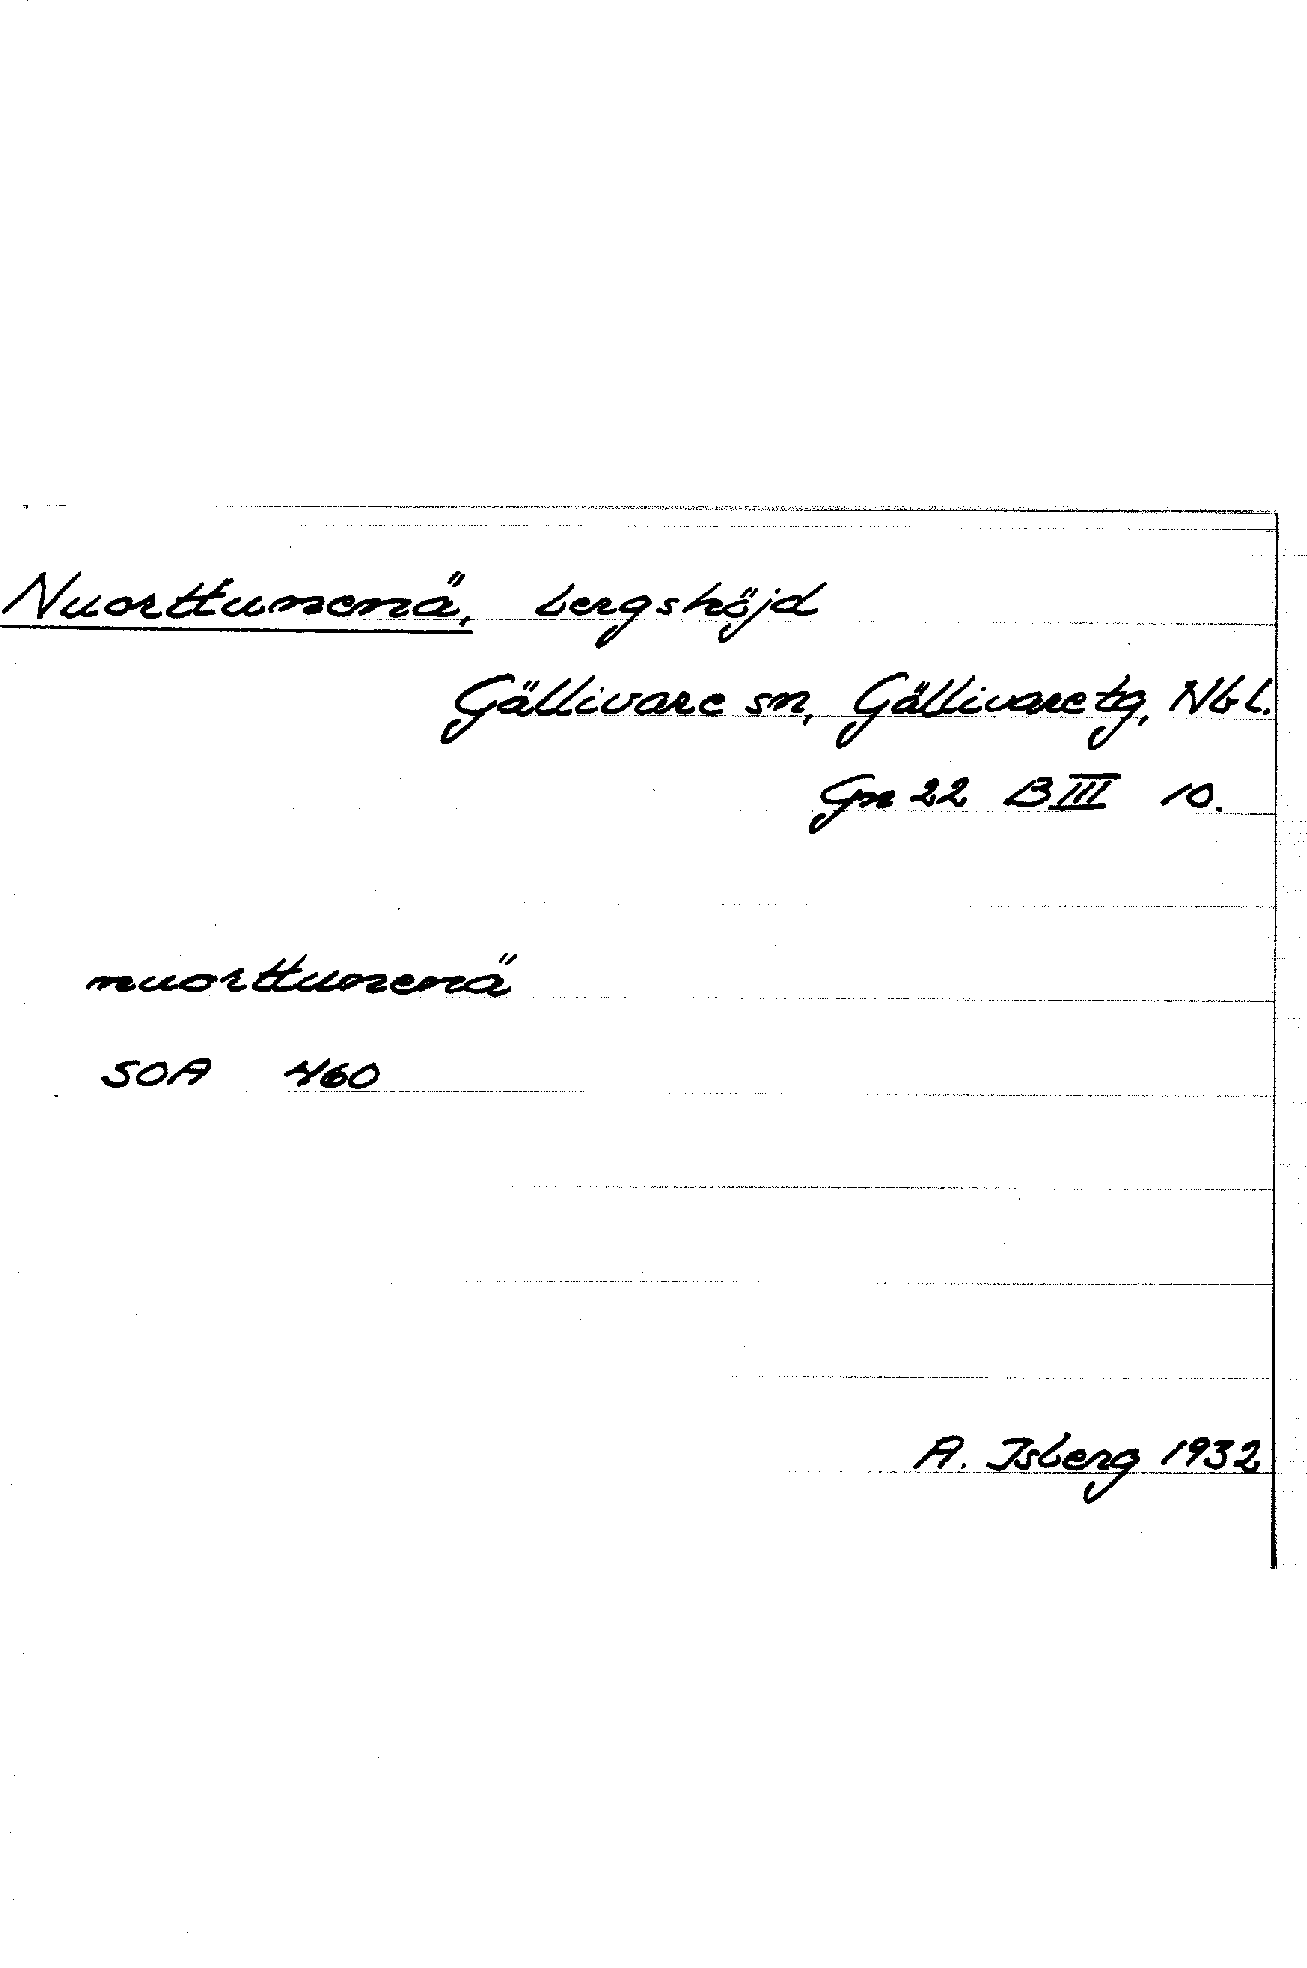 Nuorttunenä, bergshöjd
Gällivare sn, Gällivare tg, Nb l.
Gn 22 B III 10.
nuorttunenä
SOA 460
A. Isberg 1932